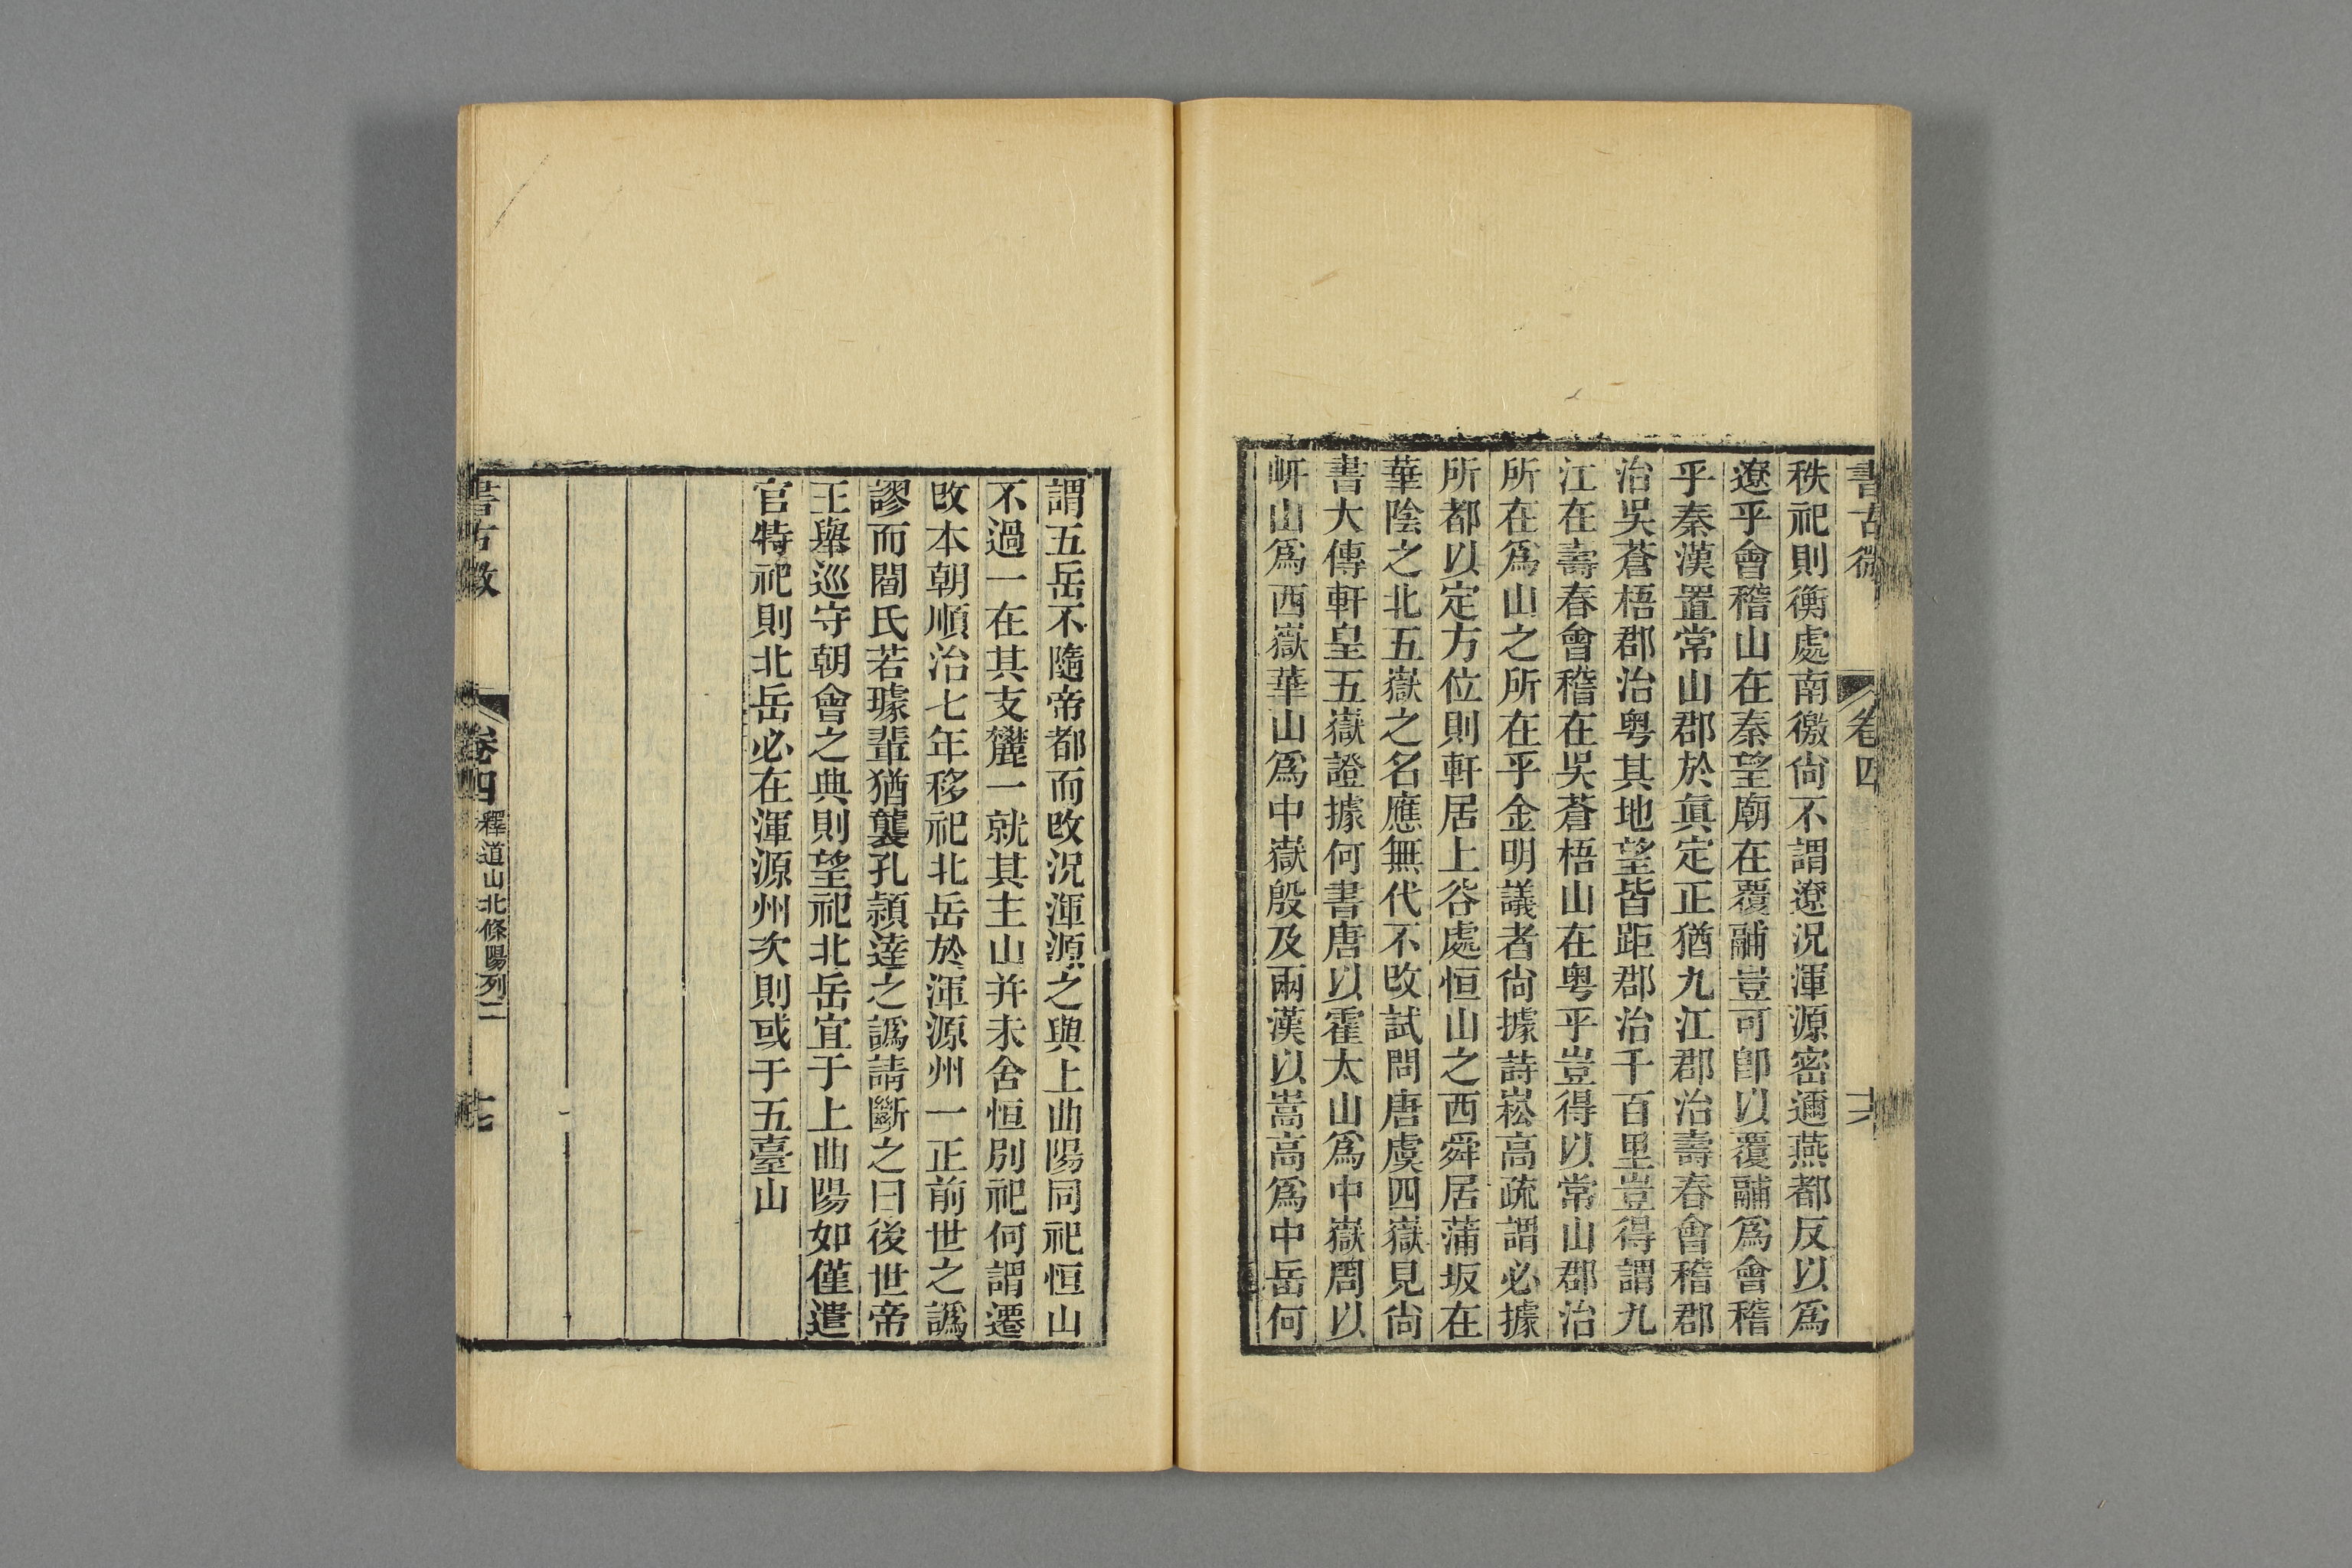 書古微 卷四 十六
秩祀則衡處南徼尙不謂遼况渾源密邇燕都反以爲
遼乎會稽山在秦望廟在覆鬴豈可卽以覆鬴爲會稽
乎秦漢置常山郡於眞定正猶九江郡治壽春會稽郡
治吳蒼梧郡治粤其地望皆距郡治千百里豈得謂九
江在壽春會稽在吳蒼梧山在粤乎豈得以常山郡治
所在爲山之所在乎金明議者尙據詩崧高疏謂必據
所都以定方位則軒居上谷處恒山之西舜居蒲坂在
華陰之北五嶽之名應無代不改試問唐虞四嶽見尙
書大傳軒皇五嶽證據何書唐以霍太山爲中嶽周以
岍山爲西嶽華山爲中嶽殷及兩漢以嵩高爲中岳何
謂五岳不隨帝都而改況渾源之與上曲陽同祀恒山
不過一在其支麓一就其主山并未舍恒別祀何謂遷
改本朝順治七年移祀北岳於渾源州一正前世之譌
謬而閻氏若璩輩猶襲孔頴達之譌請斷之曰後世帝
王舉巡守朝會之典則望祀北岳宜于上曲陽如僅遣
官特祀則北岳必在渾源州次則或于五臺山
書古微 卷四 釋道山北條陽列二 十七